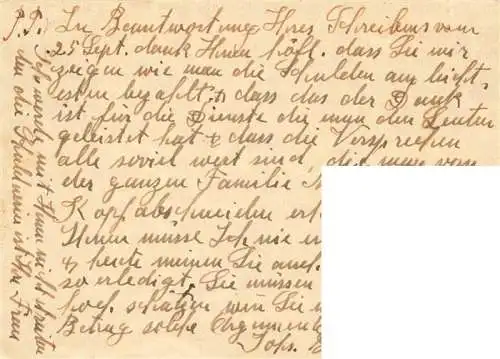 P.P.
In Beantwortung Ihres Schreibens vom
25 Sept. dank Ihnen höfl. dass Sie mir
zeigen wie man die Schulden am leicht-
esten bezahlt, & dass das der Dank
ist für die Dienste die man den Leuten
geleistet hat & dass die Versprechen
alle soviel wert sind, die man von
der ganzen Familie
Kopfabschneiden
Ihnen müsse Ich nie
& heute meinen Sie auch
so erledigt. Sie müssen
hoch schätzen wen Sie
Betrag solche Argumente
Joh.
Ich werde mit Ihnen nicht streiten
den die Schuldnerin ist Ihre Frau